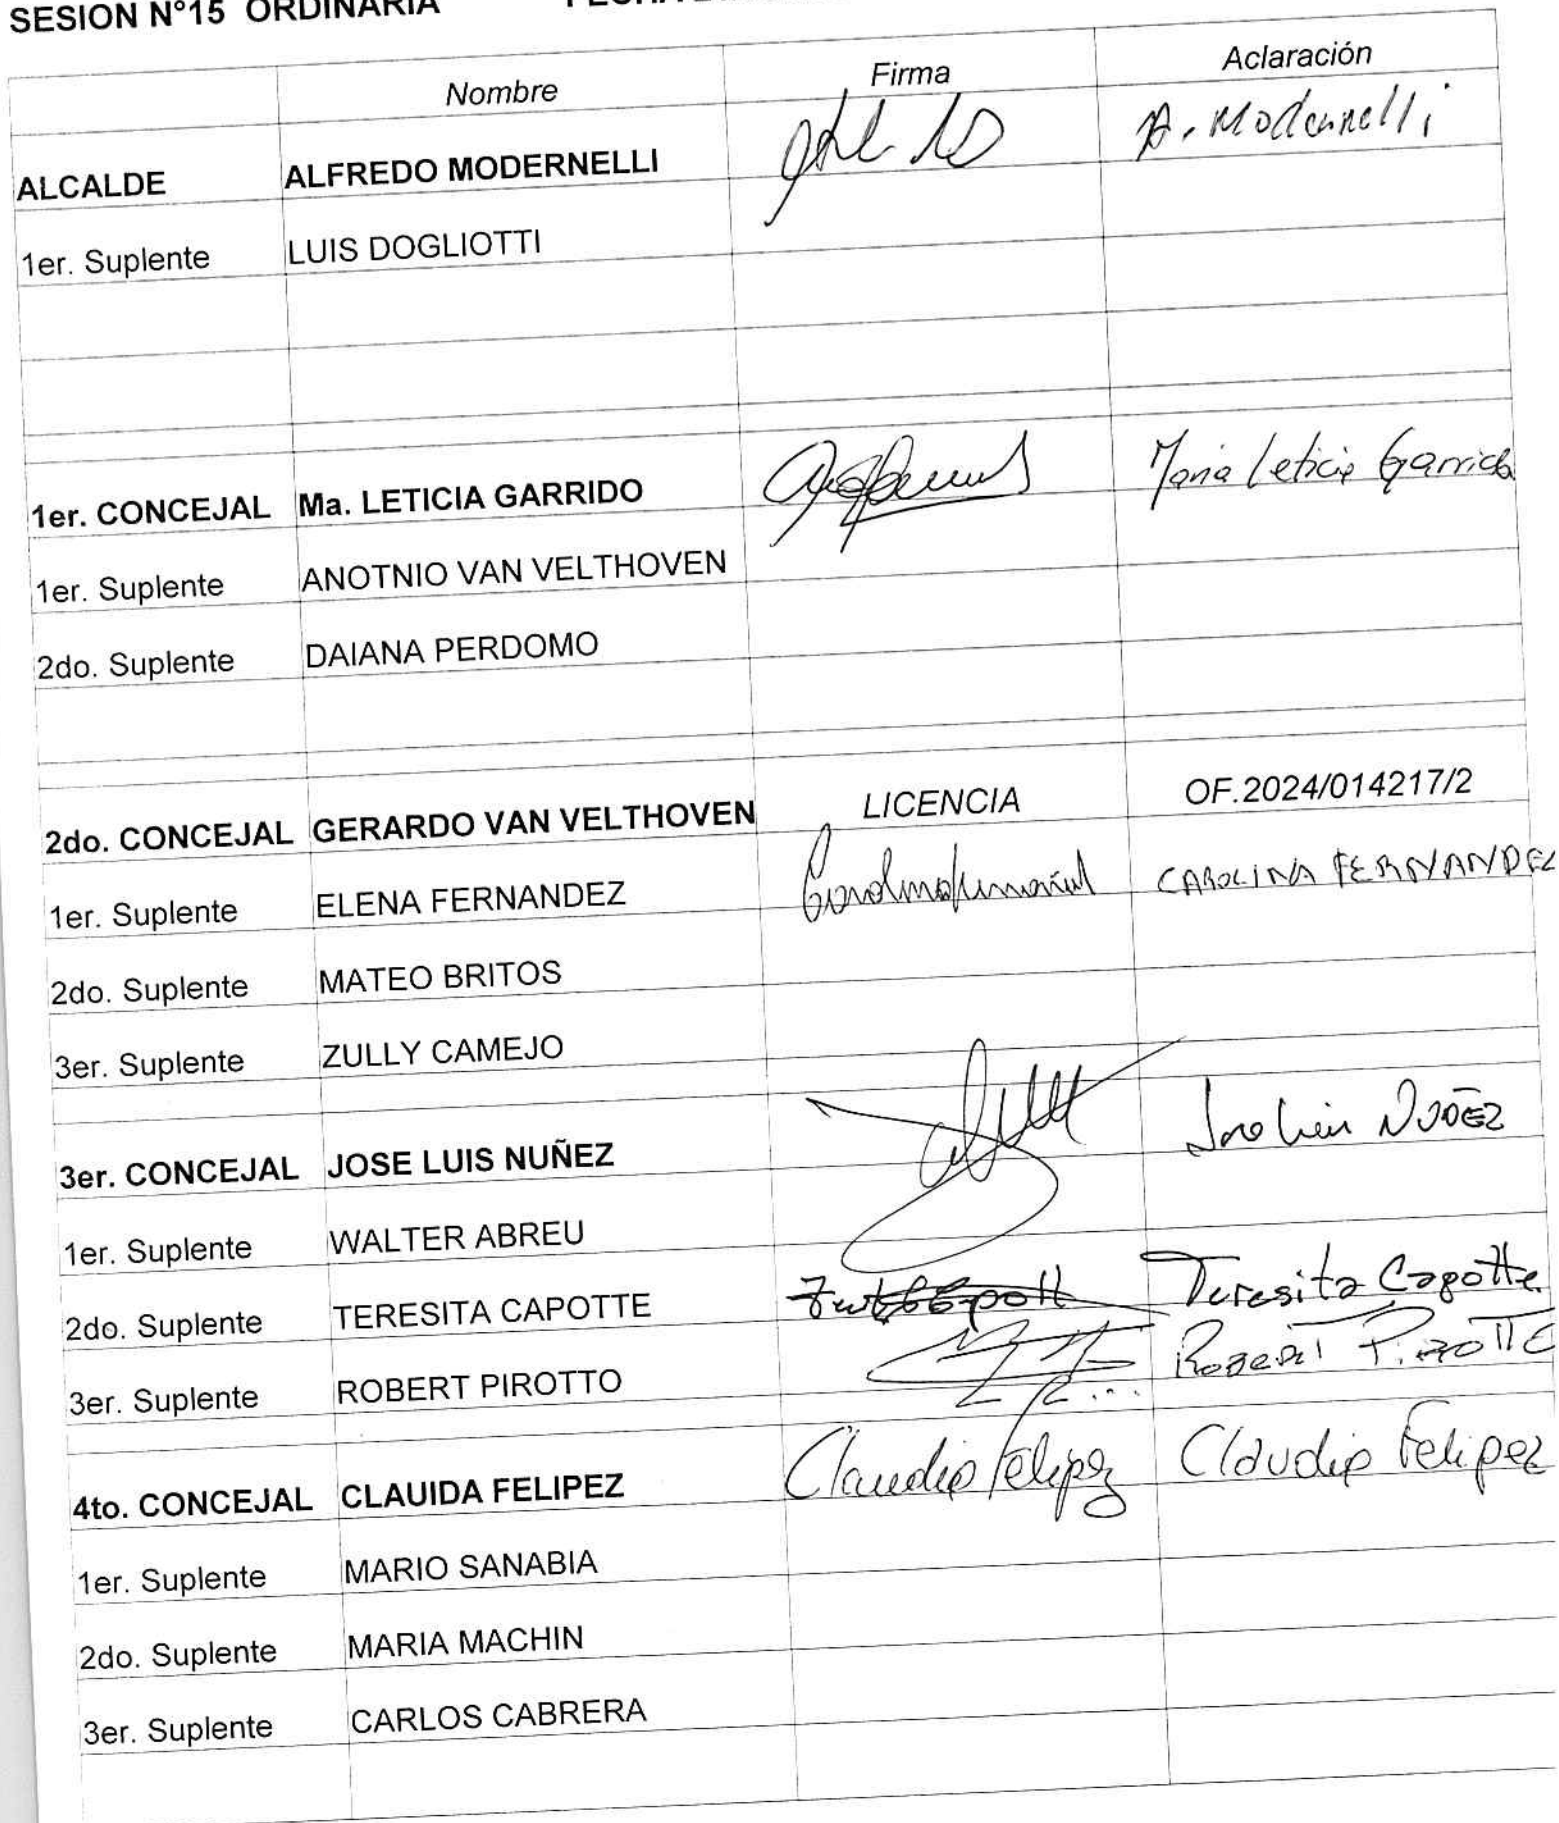 SESION N°15 ORDINARIA
Nombre Firma Aclaración
ALCALDE ALFREDO MODERNELLI A. Modernelli
1er. Suplente LUIS DOGLIOTTI
1er. CONCEJAL Ma. LETICIA GARRIDO Maria Leticia Garrido
1er. Suplente ANOTNIO VAN VELTHOVEN
2do. Suplente DAIANA PERDOMO
2do. CONCEJAL GERARDO VAN VELTHOVEN LICENCIA OF.2024/014217/2
1er. Suplente ELENA FERNANDEZ CAROLINA FERNANDEZ
2do. Suplente MATEO BRITOS
3er. Suplente ZULLY CAMEJO
3er. CONCEJAL JOSE LUIS NUÑEZ Jose Luis NUÑEZ
1er. Suplente WALTER ABREU
2do. Suplente TERESITA CAPOTTE Teresita Capotte
3er. Suplente ROBERT PIROTTO ROBERT PIROTTO
4to. CONCEJAL CLAUIDA FELIPEZ Claudia Felipez Claudia Felipez
1er. Suplente MARIO SANABIA
2do. Suplente MARIA MACHIN
3er. Suplente CARLOS CABRERA